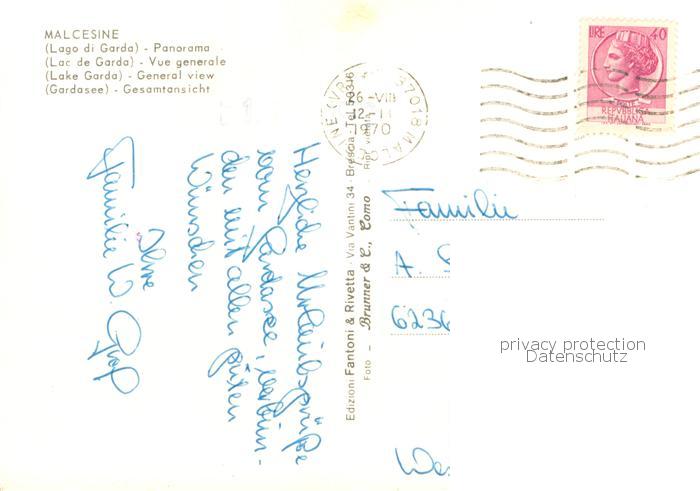 MALCESINE
(Lago di Garda) - Panorama
(Lac de Garda) - Vue generale
(Lake Garda) - General view
(Gardasee) - Gesamtansicht
Herzliche Urlaubsgrüße
vom Gardasee, verbun-
den mit allen guten
Wünschen
Ihre
Familie W. Graf
Edizioni Fantoni & Rivetta - Via Vantini 34 - Brescia - Tel. 50346
Foto - Brunner & C., Como - Ripr. vietata
37018 MALCESINE (VR)
26-VIII
12-
1970
LIRE 40
REPVBBLICA
ITALIANA
Familie
A.
6236
privacy protection
Datenschutz